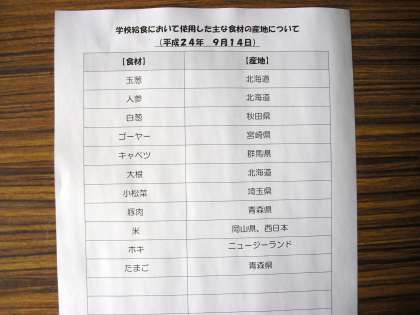 学校給食において使用した主な食材の産地について
(平成24年 9月14日)
【食材】 【産地】
玉葱 北海道
人参 北海道
白葱 秋田県
ゴーヤー 宮崎県
キャベツ 群馬県
大根 北海道
小松菜 埼玉県
豚肉 青森県
米 岡山県、西日本
ホキ ニュージーランド
たまご 青森県